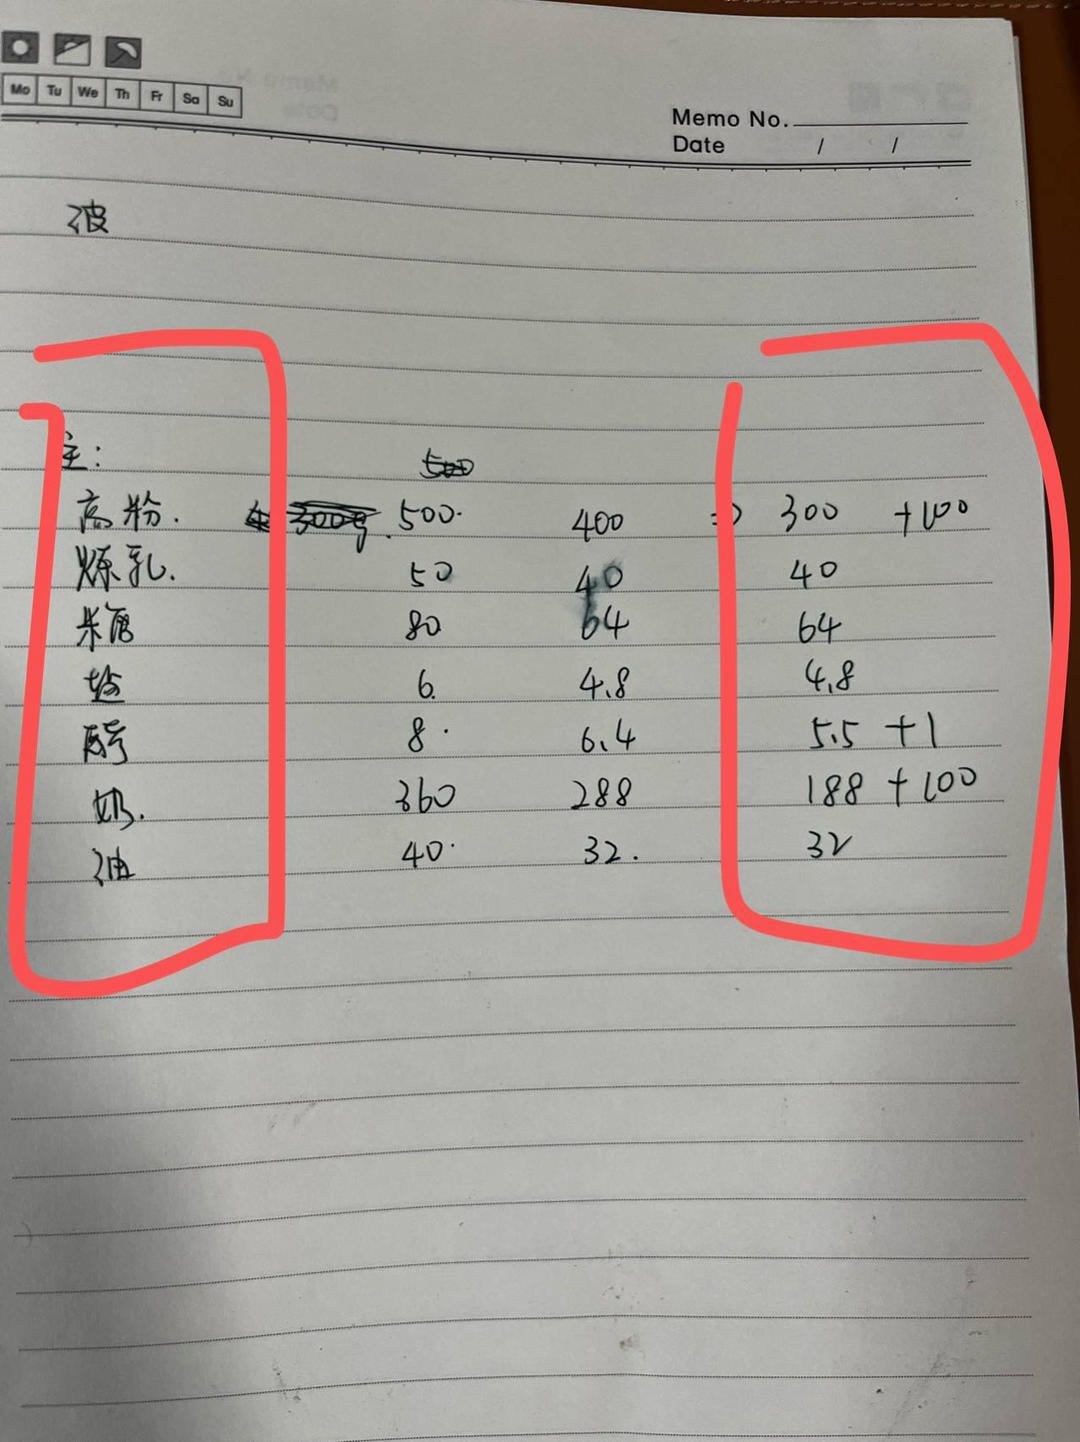 Mo Tu We Th Fr Sa Su
Memo No.
Date / /
波
主:
高粉. 500. 400 => 300 +100
炼乳. 50 40 40
糖 80 64 64
盐 6. 4.8 4.8
酵 8. 6.4 5.5 +1
奶. 360 288 188 +100
油 40. 32. 32